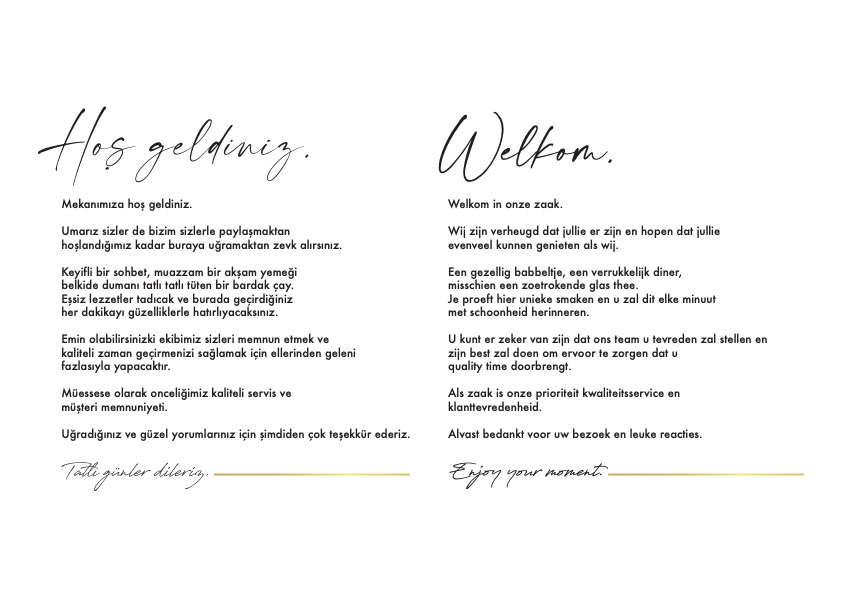 Hoş geldiniz.
Mekanımıza hoş geldiniz.
Umarız sizler de bizim sizlerle paylaşmaktan
hoşlandığımız kadar buraya uğramaktan zevk alırsınız.
Keyifli bir sohbet, muazzam bir akşam yemeği
belkide dumanı tatlı tatlı tüten bir bardak çay.
Eşsiz lezzetler tadıcak ve burada geçirdiğiniz
her dakikayı güzelliklerle hatırlıyacaksınız.
Emin olabilirsinizki ekibimiz sizleri memnun etmek ve
kaliteli zaman geçirmenizi sağlamak için ellerinden geleni
fazlasıyla yapacaktır.
Müessese olarak onceliğimiz kaliteli servis ve
müşteri memnuniyeti.
Uğradığınız ve güzel yorumlarınız için şimdiden çok teşekkür ederiz.
Tatlı günler dileriz.
Welkom.
Welkom in onze zaak.
Wij zijn verheugd dat jullie er zijn en hopen dat jullie
evenveel kunnen genieten als wij.
Een gezellig babbeltje, een verrukkelijk diner,
misschien een zoetrokende glas thee.
Je proeft hier unieke smaken en u zal dit elke minuut
met schoonheid herinneren.
U kunt er zeker van zijn dat ons team u tevreden zal stellen en
zijn best zal doen om ervoor te zorgen dat u
quality time doorbrengt.
Als zaak is onze prioriteit kwaliteitsservice en
klanttevredenheid.
Alvast bedankt voor uw bezoek en leuke reacties.
Enjoy your moment.